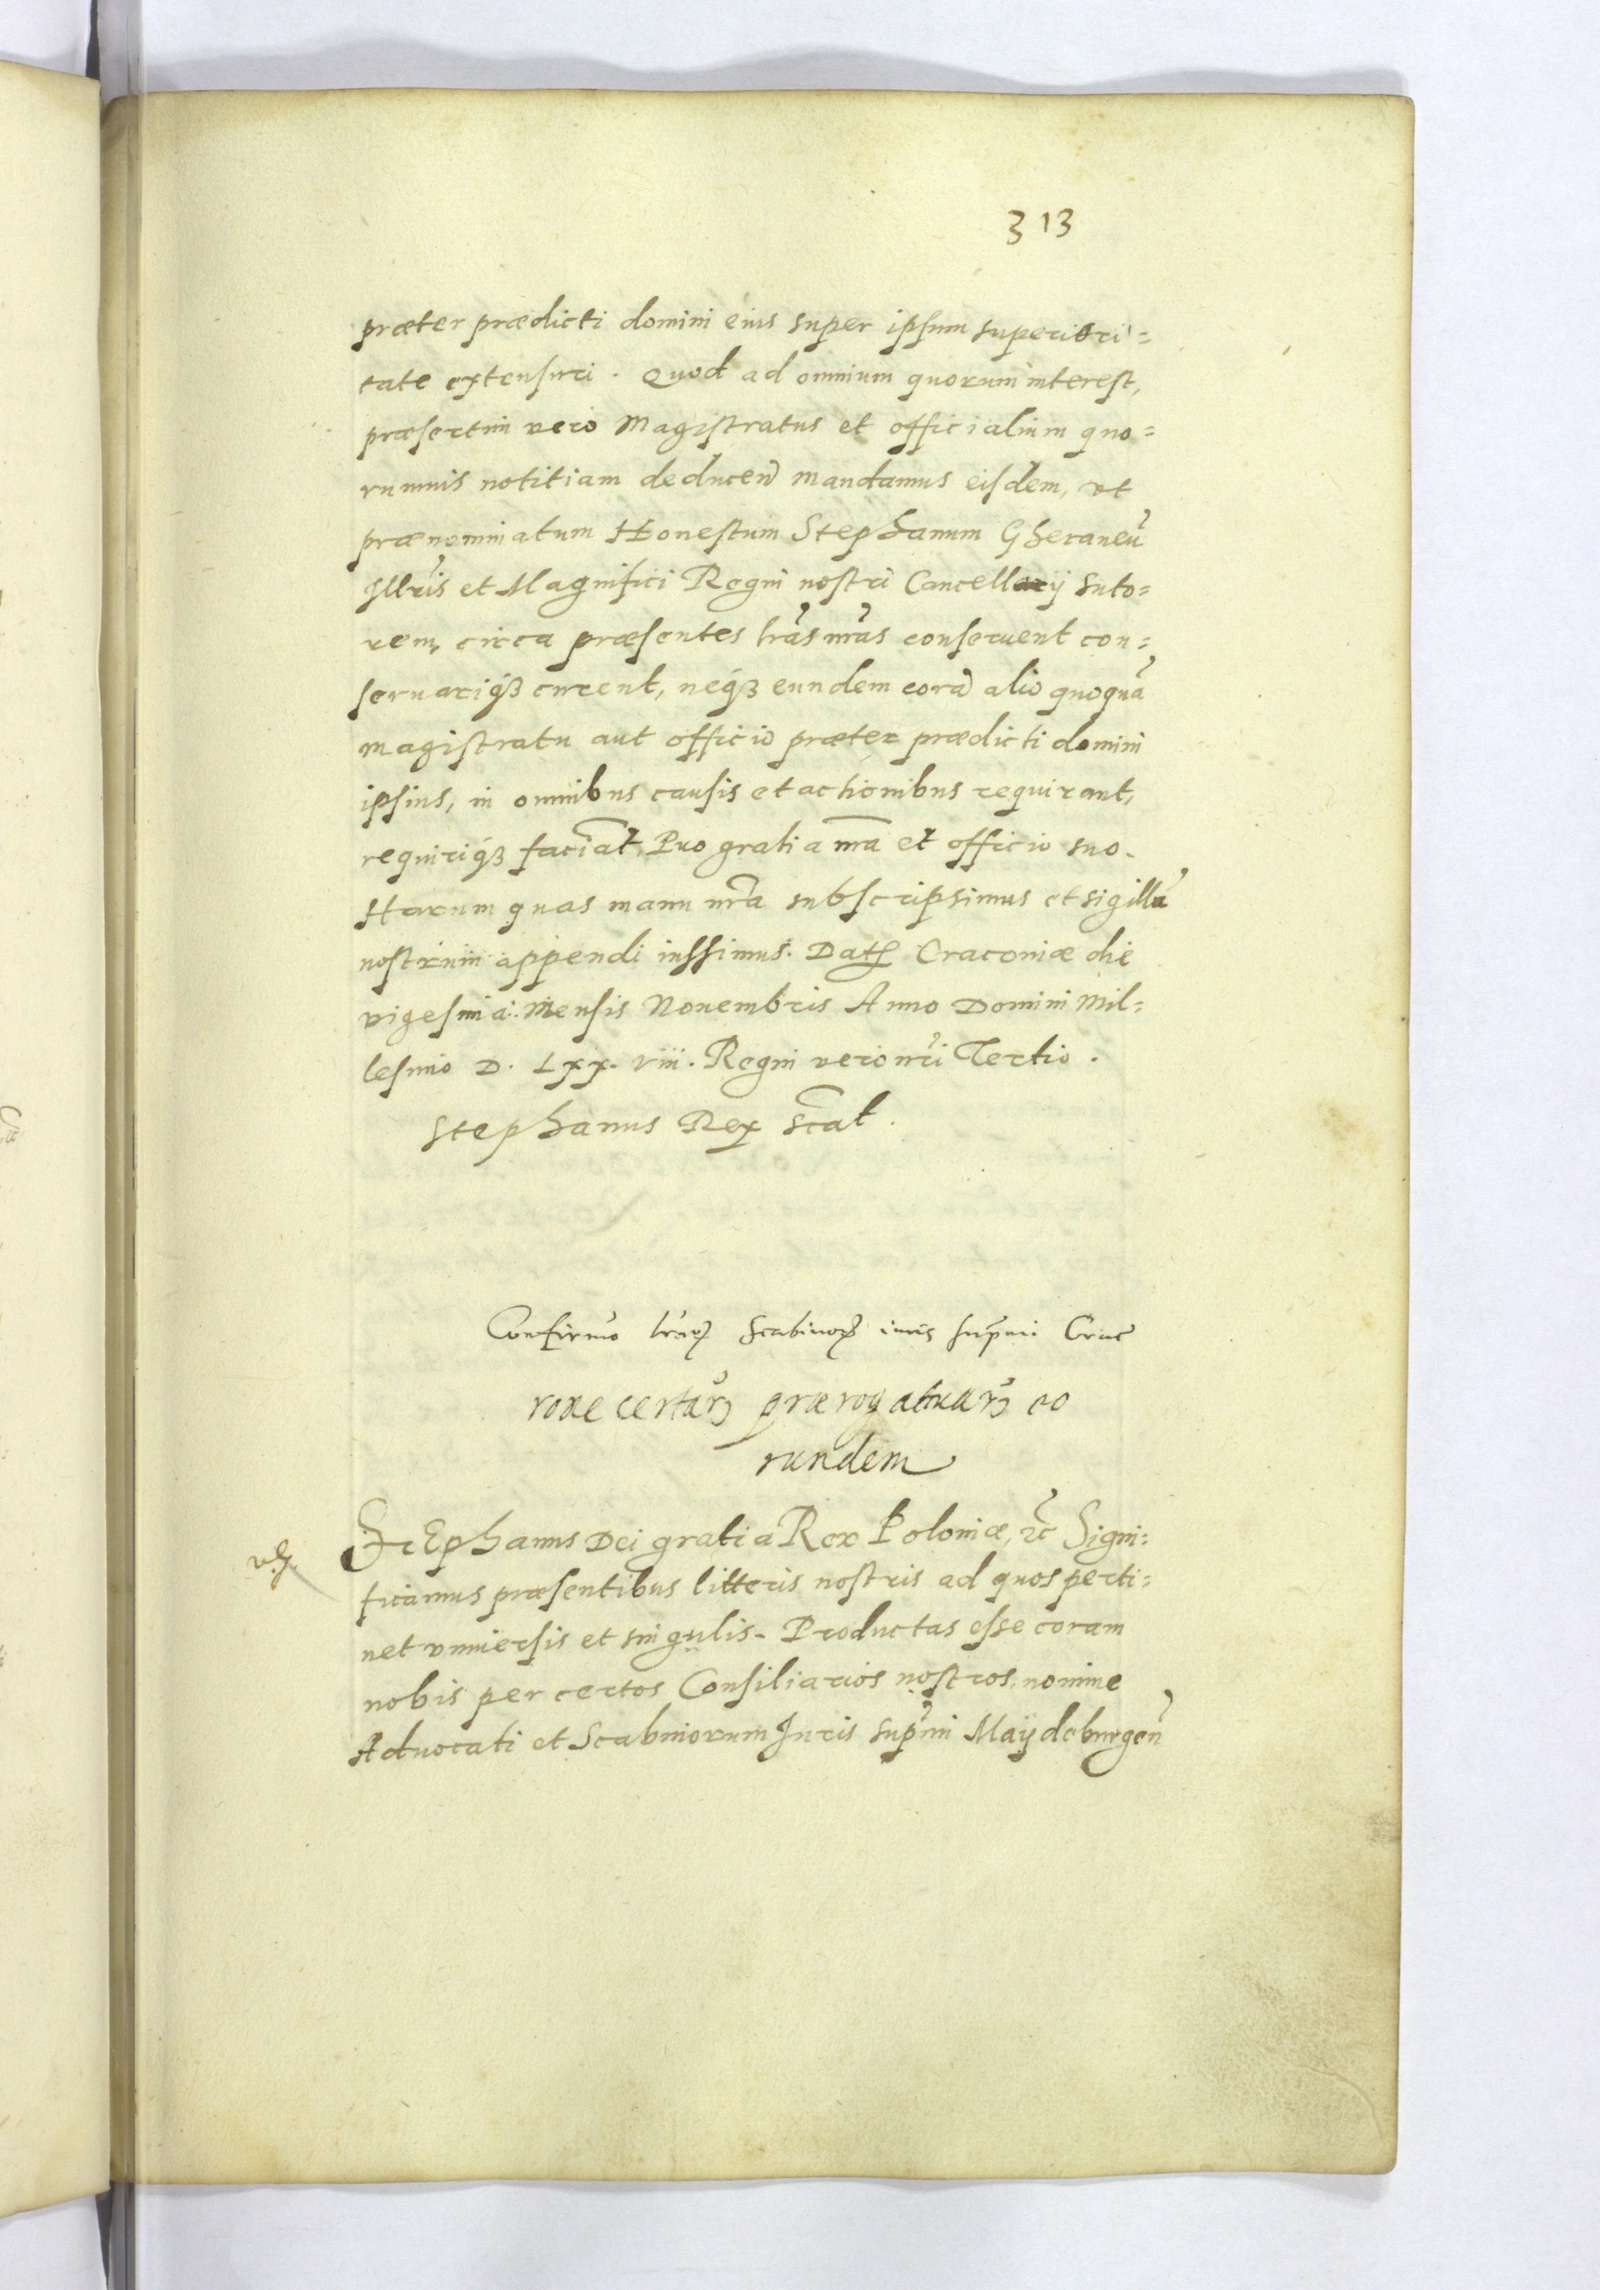 313
præter prædicti domini eius super ipsum superiori=
tate extensuri. Quod ad omnium quorum interest,
præsertim vero Magistratus et officialium quo=
rumuis notitiam deducen̄ mandamus eisdem, vt
prænominatum Honestum Stephanum Gheraneū
Illr̄is et Magnifici Regni nostri Cancellarij suto=
rem, circa præsentes lr̄as nr̄as conseruent con=
seruariq́ꝫ curent, neq́ꝫ eundem corā alio quoquā
magistratu aut officio præter prædicti domini
ipsius, in omnibus causis et actionibus requirant,
requiriq́ꝫ faciāt, Pro gratia nr̄a et officio suo.
Harum quas manu nr̄a subscripsimus et sigillū
nostrum appendi iussimus. Datꝭ Craconiæ die
vigesima. Mensis Nouembris Anno Domini Mil=
lesimo D. Lxx. viii. Regni vero nr̄i Tertio.
Stephanus Rex sc̄at.
Confirmo lr̄aꝝ Scabinoꝝ iuris supr̄mi Crac
certaꝝ prærogatiuaꝝ eo
rundem
Stephanus Dei gratia Rex Poloniæ, ꝛc̄ Signi=
ficamus præsentibus litteris nostris ad quos perti=
net vniuersis et singulis. Productas esse coram
nobis per certos Consiliarios nostros, nomine
Aduocati et Scabinorum Iuris supr̄mi Maydeburgen̄